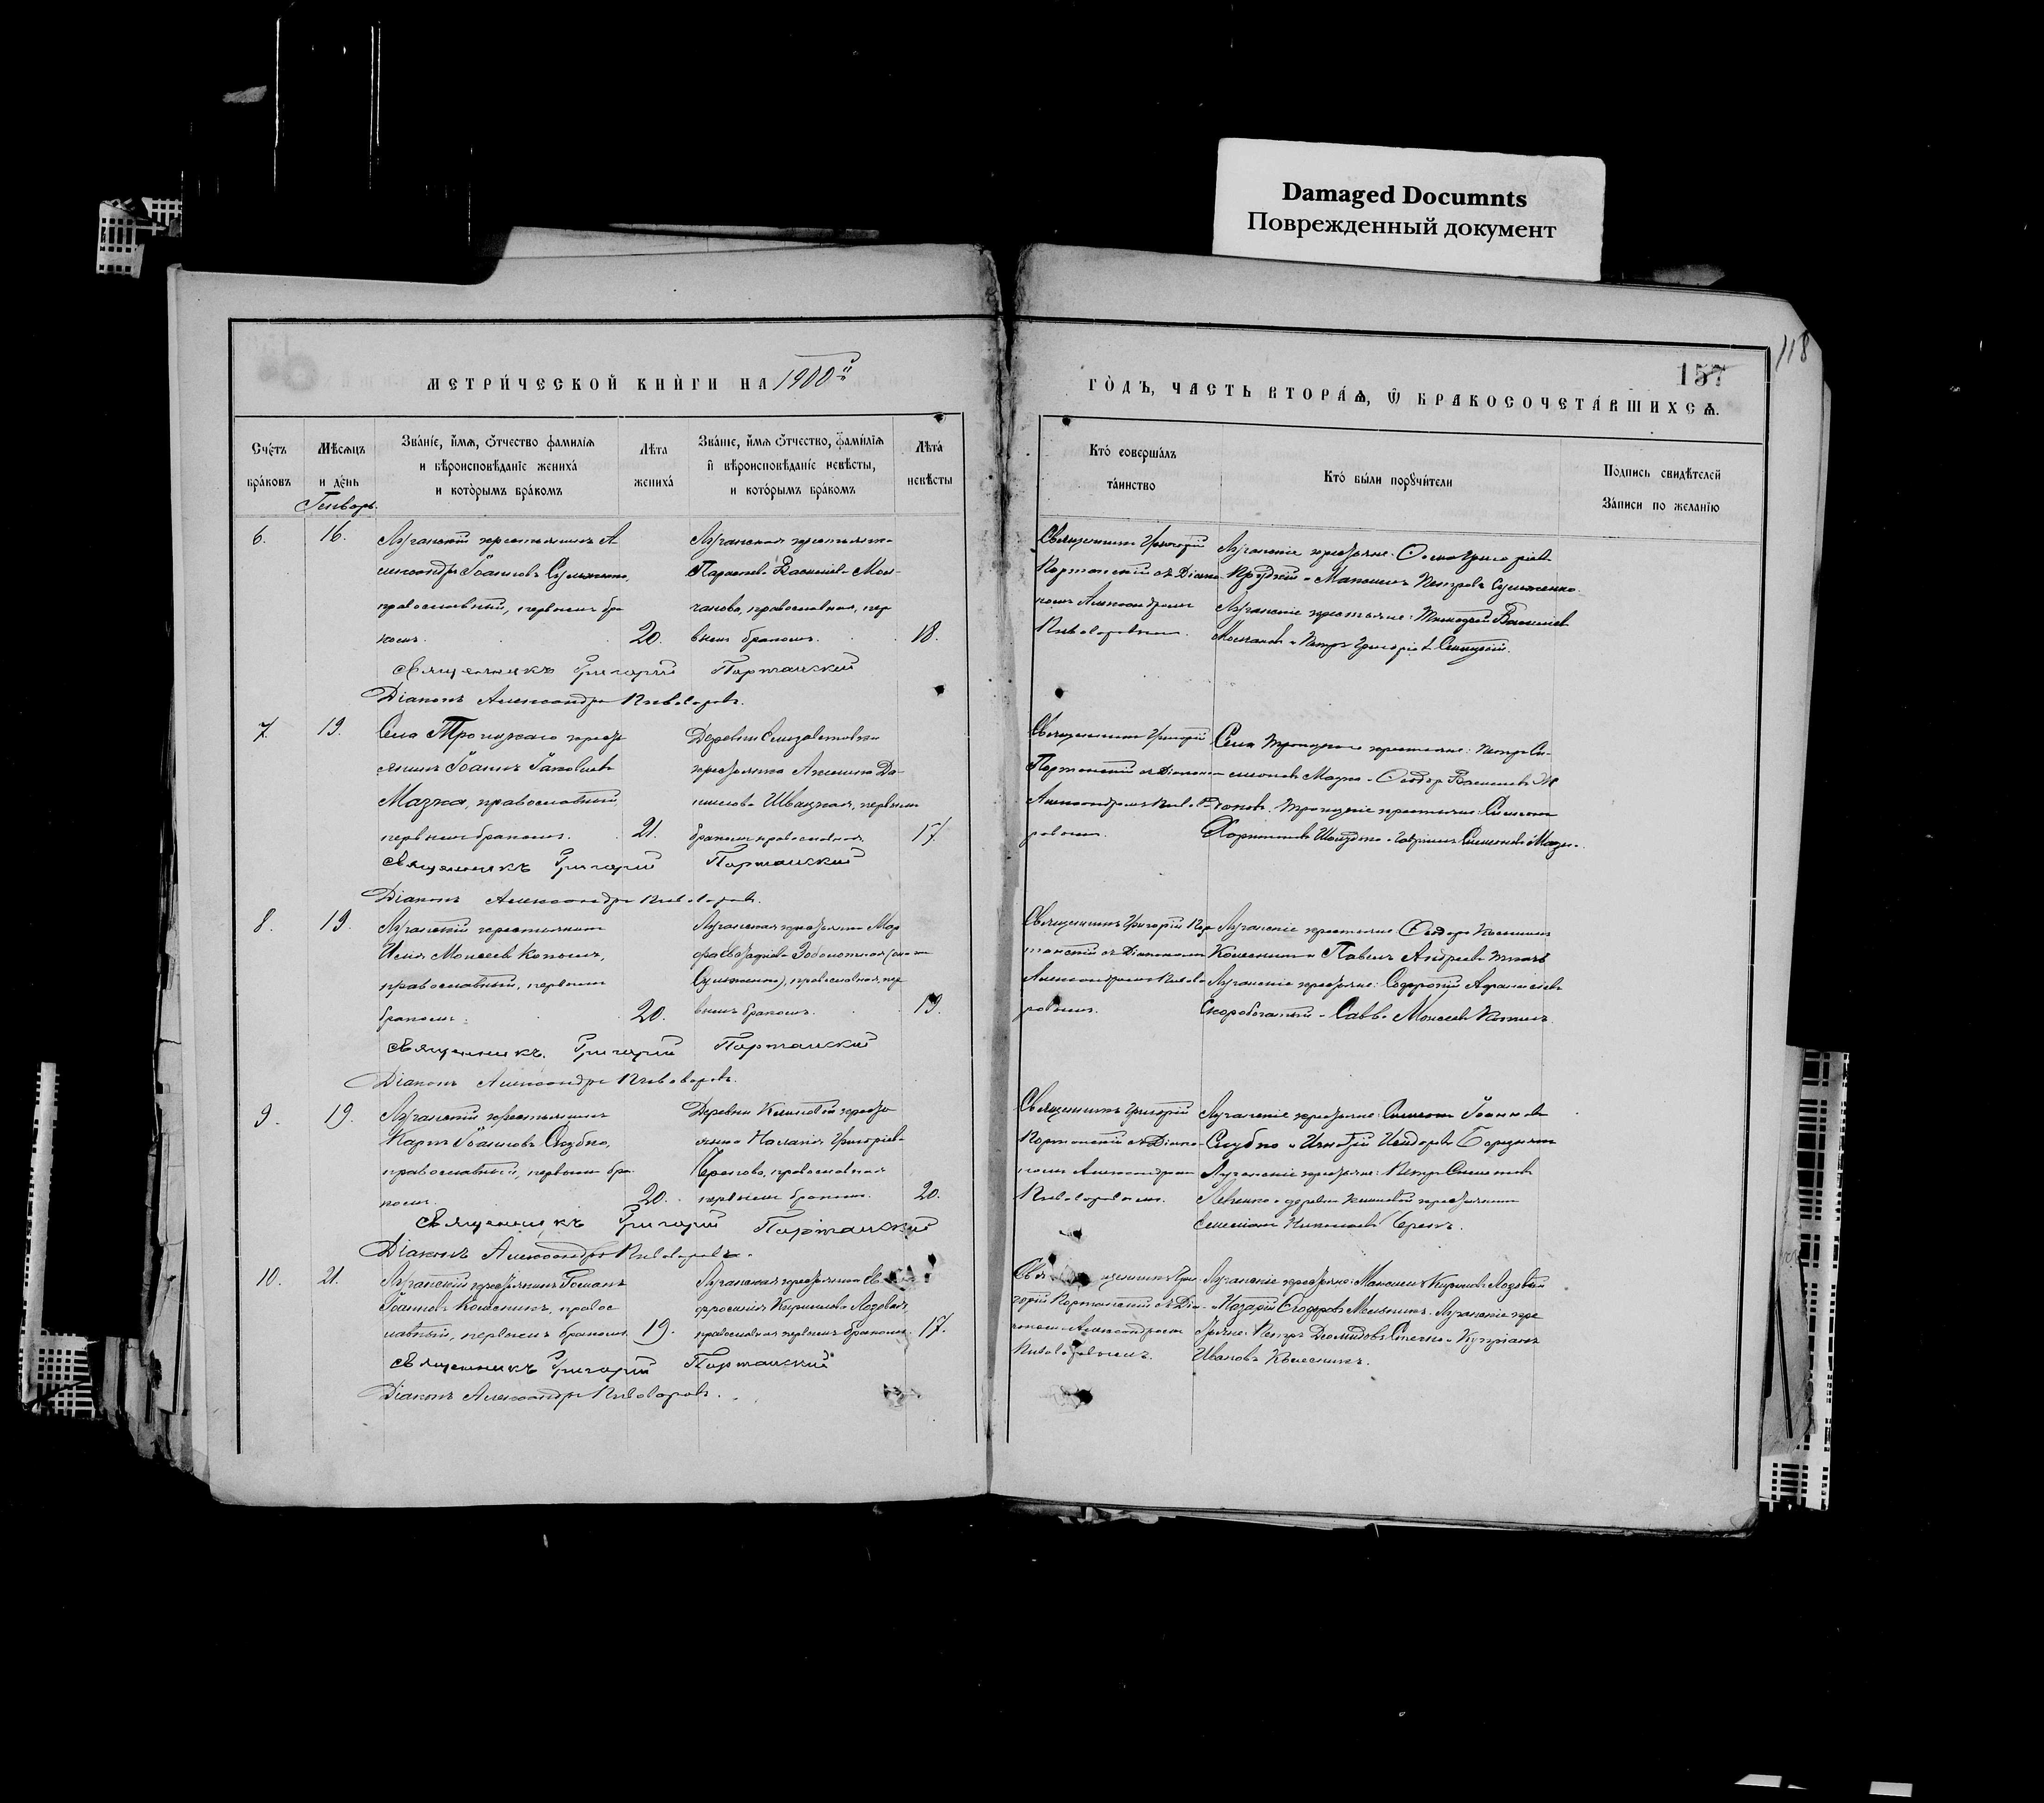 Damaged Documnts
Поврежденный документ
118
157
МЕТРИ́ЧЕСКОЙ КНИ́ГИ НА 1900-й
ГО́ДЪ, ЧАСТЬ ВТОРА́Ѧ, Ѿ БРАКОСОЧЕТА́ВШИХСѦ.
Сче́тъ бра́ковъ
Мѣ́сѧцъ и де́нь
Зва́нїе, и́мѧ, ѻ́тчество фами́лїѧ и вѣроисповѣ́данїе жениха́ и кото́рымъ бра́комъ
Лѣ́та жениха́
Зва́нїе, и́мѧ ѻ́тчество, фами́лїѧ и҆ вѣроисповѣ́данїе невѣ́сты, и кото́рымъ бра́комъ
Лѣта́ невѣ́сты
Кто́ соверша́лъ та́инство
Кто́ бы́ли порꙋчи́тели
По́дпись свидѣ́телей За́писи по жела́нїю
Генварь.
6.
16.
Луганскій крестьянинъ А
лександръ Іоанновъ
православный, первымъ бра
комъ.
20.
Луганская крестьянка
Васильева Мол-
чанова, православная, пер
вымъ бракомъ.
18.
Священникъ Григорій
Портанскій съ Діако-
номъ Александромъ
Пивоваровымъ.
Луганскіе крестьяне:
Максимъ Петровъ
Луганскіе крестьяне: Васильевъ
Молчановъ и Петръ Григорьевъ
Священникъ Григорій Портанский
Діаконъ Александръ Пивоваровъ.
7.
19.
Села Троицкаго кресть
янинъ Іоаннъ Іаковлевъ
Мазка, православный,
первымъ бракомъ.
21.
Деревни Елизаветовки
крестьянка Акилина Да-
нилова Швацкая, первымъ
бракомъ православная.
17.
Священникъ Григорій
Портанскій съ Діакономъ
Александромъ Пивова-
ровымъ.
Села Троицкаго крестьяне: Петръ Си-
меоновъ Мазка и Ѳеодоръ Васильевъ
Троицкіе крестьяне: Симеонъ
Харитоновъ Гавріилъ Симеоновъ Мазка.
Священникъ Григорий Портанский
Діаконъ Александръ Пивоваровъ.
8.
19.
Луганскій крестьянинъ
Илія Моисеевъ Копылъ,
православный, первымъ
бракомъ.
20.
Луганская крестьянка Мар
фа Заболотная
православная, пер
вымъ бракомъ.
19.
Священникъ Григорій Пор
танскій съ Діакономъ
Александромъ Пивова
ровымъ.
Луганскіе крестьяне: Ѳеодоръ
Колесникъ и Павелъ Андреевъ Ткачъ
Луганскіе крестьяне: Софроній Аѳанасіевъ
Скоробогатый и Савва Моисеевъ Копылъ.
Священникъ Григорий Портанский
Діаконъ Александръ Пивоваровъ.
9.
19.
Луганскій крестьянинъ
Карпъ Іоанновъ Скубко,
православный, первымъ бра
комъ.
20.
Деревни Климовой кресть
янка Наталія Григоріева
православная
первымъ бракомъ.
20.
Священникъ Григорій
Портанскій съ Діако-
номъ Александромъ
Пивоваровымъ.
Луганскіе крестьяне: Симеонъ Іоанновъ
Скубко и Игнатій Исидоровъ
Луганскіе крестьяне: Петръ Симеоновъ
деревни Климовой крестьянинъ
Священникъ Григорий Портанский
Діаконъ Александръ Пивоваровъ.
10.
21.
Луганскій крестьянинъ Романъ
Іоанновъ Колесникъ, правос
лавный, первымъ бракомъ.
19.
Луганская крестьянка Ев
фросинія Кириллова Лозовая
православная первымъ бракомъ.
17.
Священникъ Гри
горій Портанскій съ Діа
кономъ Александромъ
Пивоваровымъ.
Луганскіе крестьяне: Максимъ Кирилловъ Лозовый
Назарій Ѳеодоровъ Мельникъ. Луганскіе кре
стьяне: Петръ Діомидовъ Кипріанъ
Ивановъ Колесникъ.
Священникъ Григорий Портанский
Діаконъ Александръ Пивоваровъ.